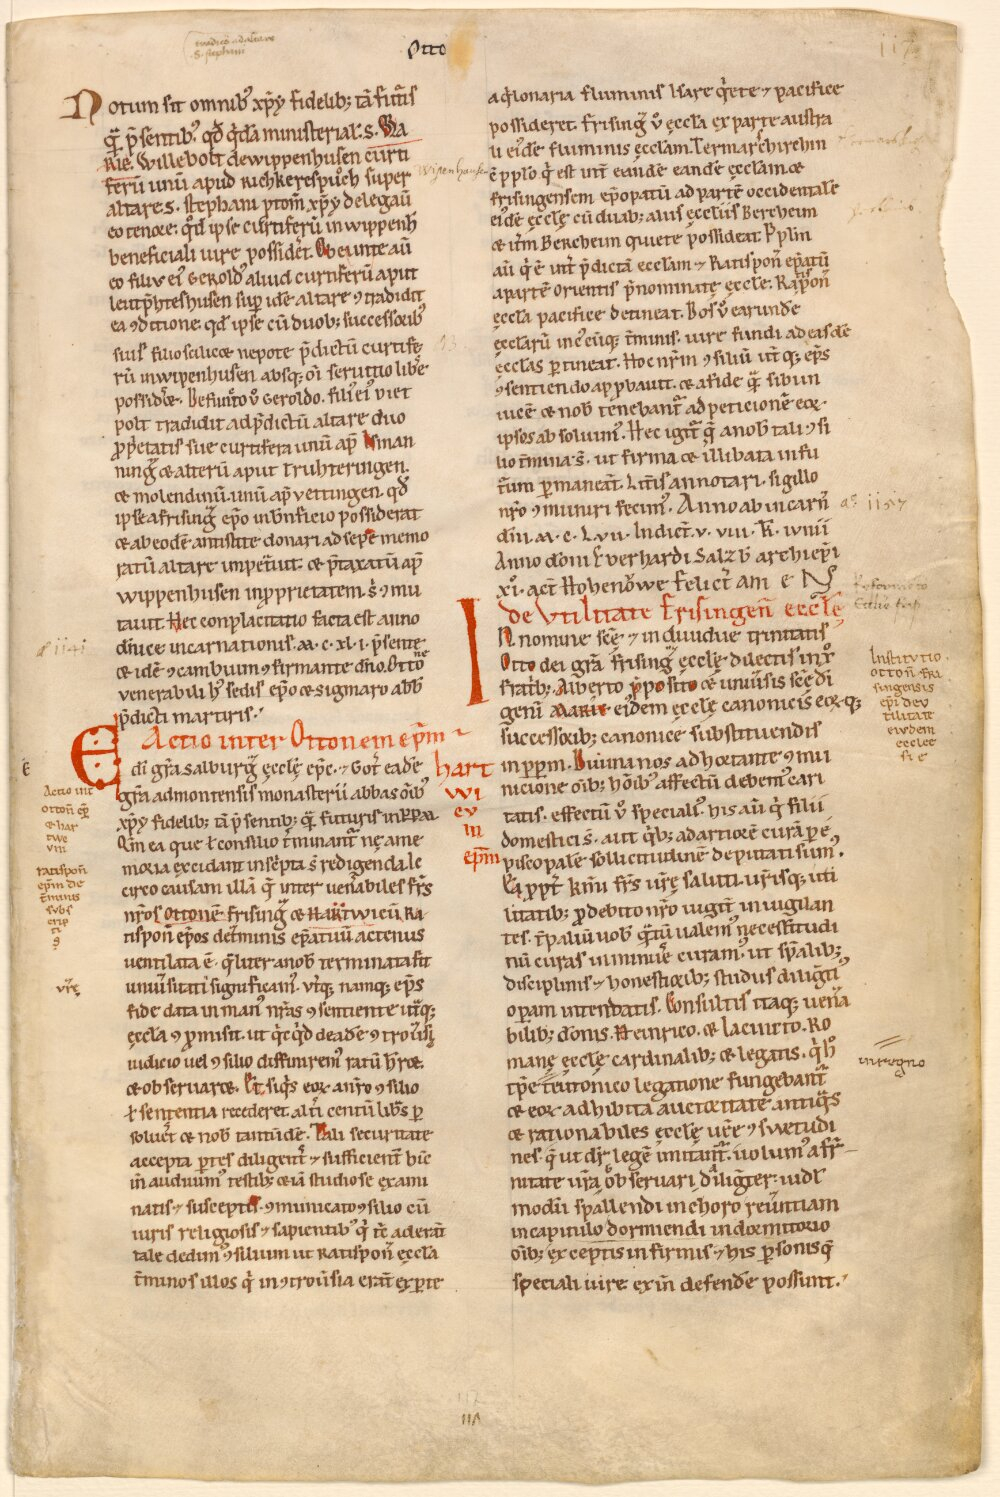 Otto
117
tradico ad altare
S. stephani
Notum sit omnib; xp̄y fidelib; tā futuris
q̄ p̄sentib; qd̄ q̄dā ministerial. S. Ma
Rie. Willebolt de wippenhusen curti
ferū unū apud Richkerespuͦch super
altare S. stephani ptom̄ xp̄y delegau̅
eo tenore. qd̄ ipse curtiferū in wippenh̄
beneficiali iure possid̄et. Obeunte au̅
eo filiꝰ eiꝰ Geroldꝰ aliud curtiferū aput
leutp̄hteshusen sup idē altare ꝯtradidit
ea ꝯditione. qd̄ ipse cū duob; successorib;
suis. filio scilicet nepote p̄dictū curtife
rū in wipenhusen absq; om̄i seruitio libe̅
possid̄et. Defuncto ū Geroldo. filiꝰ eiꝰ viet
polt tradidit ad p̄dictū altare duo
ꝓp̄etatis sue curtifera unū ap̄ Asinan
ning̃ et alterū aput truhteringen.
et molendinū unū ap̄ vettingen. qd̄
ipse a frising̃ ep̄o in b̄nficio possiderat
et ab eodē antistite donari ad sepe memo
ratū altare impet̄uit. et p̄taxatū ap̄
wippenhusen in p̄prietatem s̄ ꝯmu
tauit. Hec conplacitatio facta est anno
dn̄ice incarnationis. M. C. XL. I. p̄sente
et idē ꝯcambium ꝯfirmante dn̄o. Ottone
venerabili hꝰ sedis ep̄o et sigmaro abb̄
p̄dicti martiris.
Actio inter Ottonem ep̄m
hart
wi
cv
m
ep̄m
E dī gr̄a Salburg̃ ęcclę ep̄c. ⁊ Got̄ eadē
gr̄a admontensis monasterii abbas om̄ib;
xp̄y fidelib; tā p̄sentib; q̄ futuris in p̄p̄m
Qm̄ ea que ł consilio t̄minant̄ nę ame
moria excidant inscpta s̄ redigenda le
circo causam illā q̄ inter uen̄abiles fr̄s
nr̄os Ottonē frising̃ et Hartwicū Ra
tispon̄ ep̄os de t̄minis ep̄atuū actenus
ventilata ē. q̄liter a nob̄ terminata sit
uniūsitati significamꝰ. vt̄q; namq; ep̄s
fide data in manꝰ nr̄as ꝯsentiente ut̄q;
ęccla ꝯpromisit. ut q̄cq̄d de eadē ꝯtrou̅sia
iudicio uel ꝯsilio diffinirem ratū hr̄et.
et obseruaret. Et siq̄s eoꝝ a nr̄o ꝯsilio
ł sententia recederet. alt̄i centū libs p̄
solu̅et et nob̄ tantūdē. Tali securitate
accepta ptes diligent̄ ⁊ sufficient̄ hīc
in̄ audiuimꝰ testib; etiā studiose exami
natis ⁊ susceptis. ꝯmunicato ꝯsilio cū
uiris religiosis ⁊ sapientibꝰ q̄ tc̄ aderāt
tale dedimꝰ ꝯsilium ut Ratispon̄ ęccla
t̄minos illos q̄ in ꝯtrou̅sia erāt ex pte
aq̄lonaria fluminis Isare q̄ete ⁊ pacifice
possideret. frising̃ ū ęccla ex parte austra
li ei'dē fluminis ęcclam. Termarc̃hirehin
ē pplo q̄ est int̄ eandē eandē ęcclam et
frisingensem ep̄opatū ad partē occidentalē
ei'dē ęcclę cū duab; aliis ęccliis Bercheim
et it̄m Bercheim quiete possideat. Pplm̄
au̅ q̄ ē int̄ p̄dictā ecclam ⁊ Ratispon̄ ep̄atū
a partē orientis p̄nominatę ęccle. Ratpon̄
ęccla pacifice detineat. Dos ū earundē
ęcclarū in eꝰ cūq; t̄minis. iure fundi ad easdē
ęcclas ptineat. Hoc nr̄m ꝯsiliū ut̄q; ep̄s
ꝯsentiendo approbauit. et a fide q̄ sibi in
uicē et nob̄ tenebant̄ ad peticionē eoꝝ
ipsos absoluimꝰ. Hec igit̄ q̄ a nob̄ tali ꝯsi
lio t̄mina s̄. ut firma et illibata in fu
t̄um pmaneāt. Lit̄is annotari. sigillo
nr̄o ꝯmuniri fecimꝰ. Anno ab incarn̄
dn̄i. M. C. L. VII. Indict̄. V. VIII. K. Iunii
Anno dom̄i Eberhardi Salzb̄ archiep̄i
XI. act̄ Hohenowe felicit̄ am e N
de Vtilitate frisingen̄ ecclę
In nomine scę̄ ⁊ indiuiduę trinitatis
Otto dei gr̄a frising̃ ęcclę dilectis in xp̄o
fratrib; Alberto ꝓposito et uniu̅sis scę̄ dī
geni. Marie eidem ęcclę canonicis eoꝝq;
successorib; canonice substituendis
in p̄p̄m. Diuina nos adhortante ꝯmu
nicione om̄ib; hōib; affectū debemꝰ cari
tatis. effectū ū specialiꝰ his au̅ q̄ filii
domestici s̄. aut q̄b; ad artiorē curā p ē
piscopalē sollicitudinē deputati sumꝰ.
Ea ꝓpt̄ kmi fr̄s ur̄ę saluti. ur̄isq; uti
litatib; ꝓ debito nr̄o iugit̄ inuigilan
tes. t̄paliū uob̄ q̄tū ualemꝰ necessitudi
nū curas inminuere curamꝰ. ut sp̄alib;
disciplinis ⁊ honestiorib; studiis dilig̃tiꝰ
operam intendatis. Consultis itaq; uen̄a
bilib; donis. Heinrico. et Iacincto. Ro
manę ęcclę cardinalib; et legatis. q̄ hꝰ
tp̄e teutonico legatione fungebant̄
et eoꝝ adhibita auctoritate antiq̄s
et rationabiles ęcclę ur̄e ꝯswetudi
nes. q̄ ut dr̄ legē imitant̄. uolumꝰ a fr̄
nitate ur̄a obseruari dilig̃ter. uidl̄
modū spallendi in choro reu̅tiam
in capitulo dormiendi in dormitorio
om̄ib; exceptis infirmis ⁊ his psonis q̄
speciali iure ex in̄ defendē possunt.
wisenhausen
13
aᵒ 1141
E
Actio int̄
ottonē ep̄m
et har
twi
cum
ratispon̄
ep̄m de
t̄minis
subs
crip
ti
9
vr̄ę
aᵒ 1157
Reformatio
Eccliē frisp
Institvtio
otton̄ fri
singensis
ep̄i de v
tilitate
eivdem
ecclee
fi e
in regno
117
117